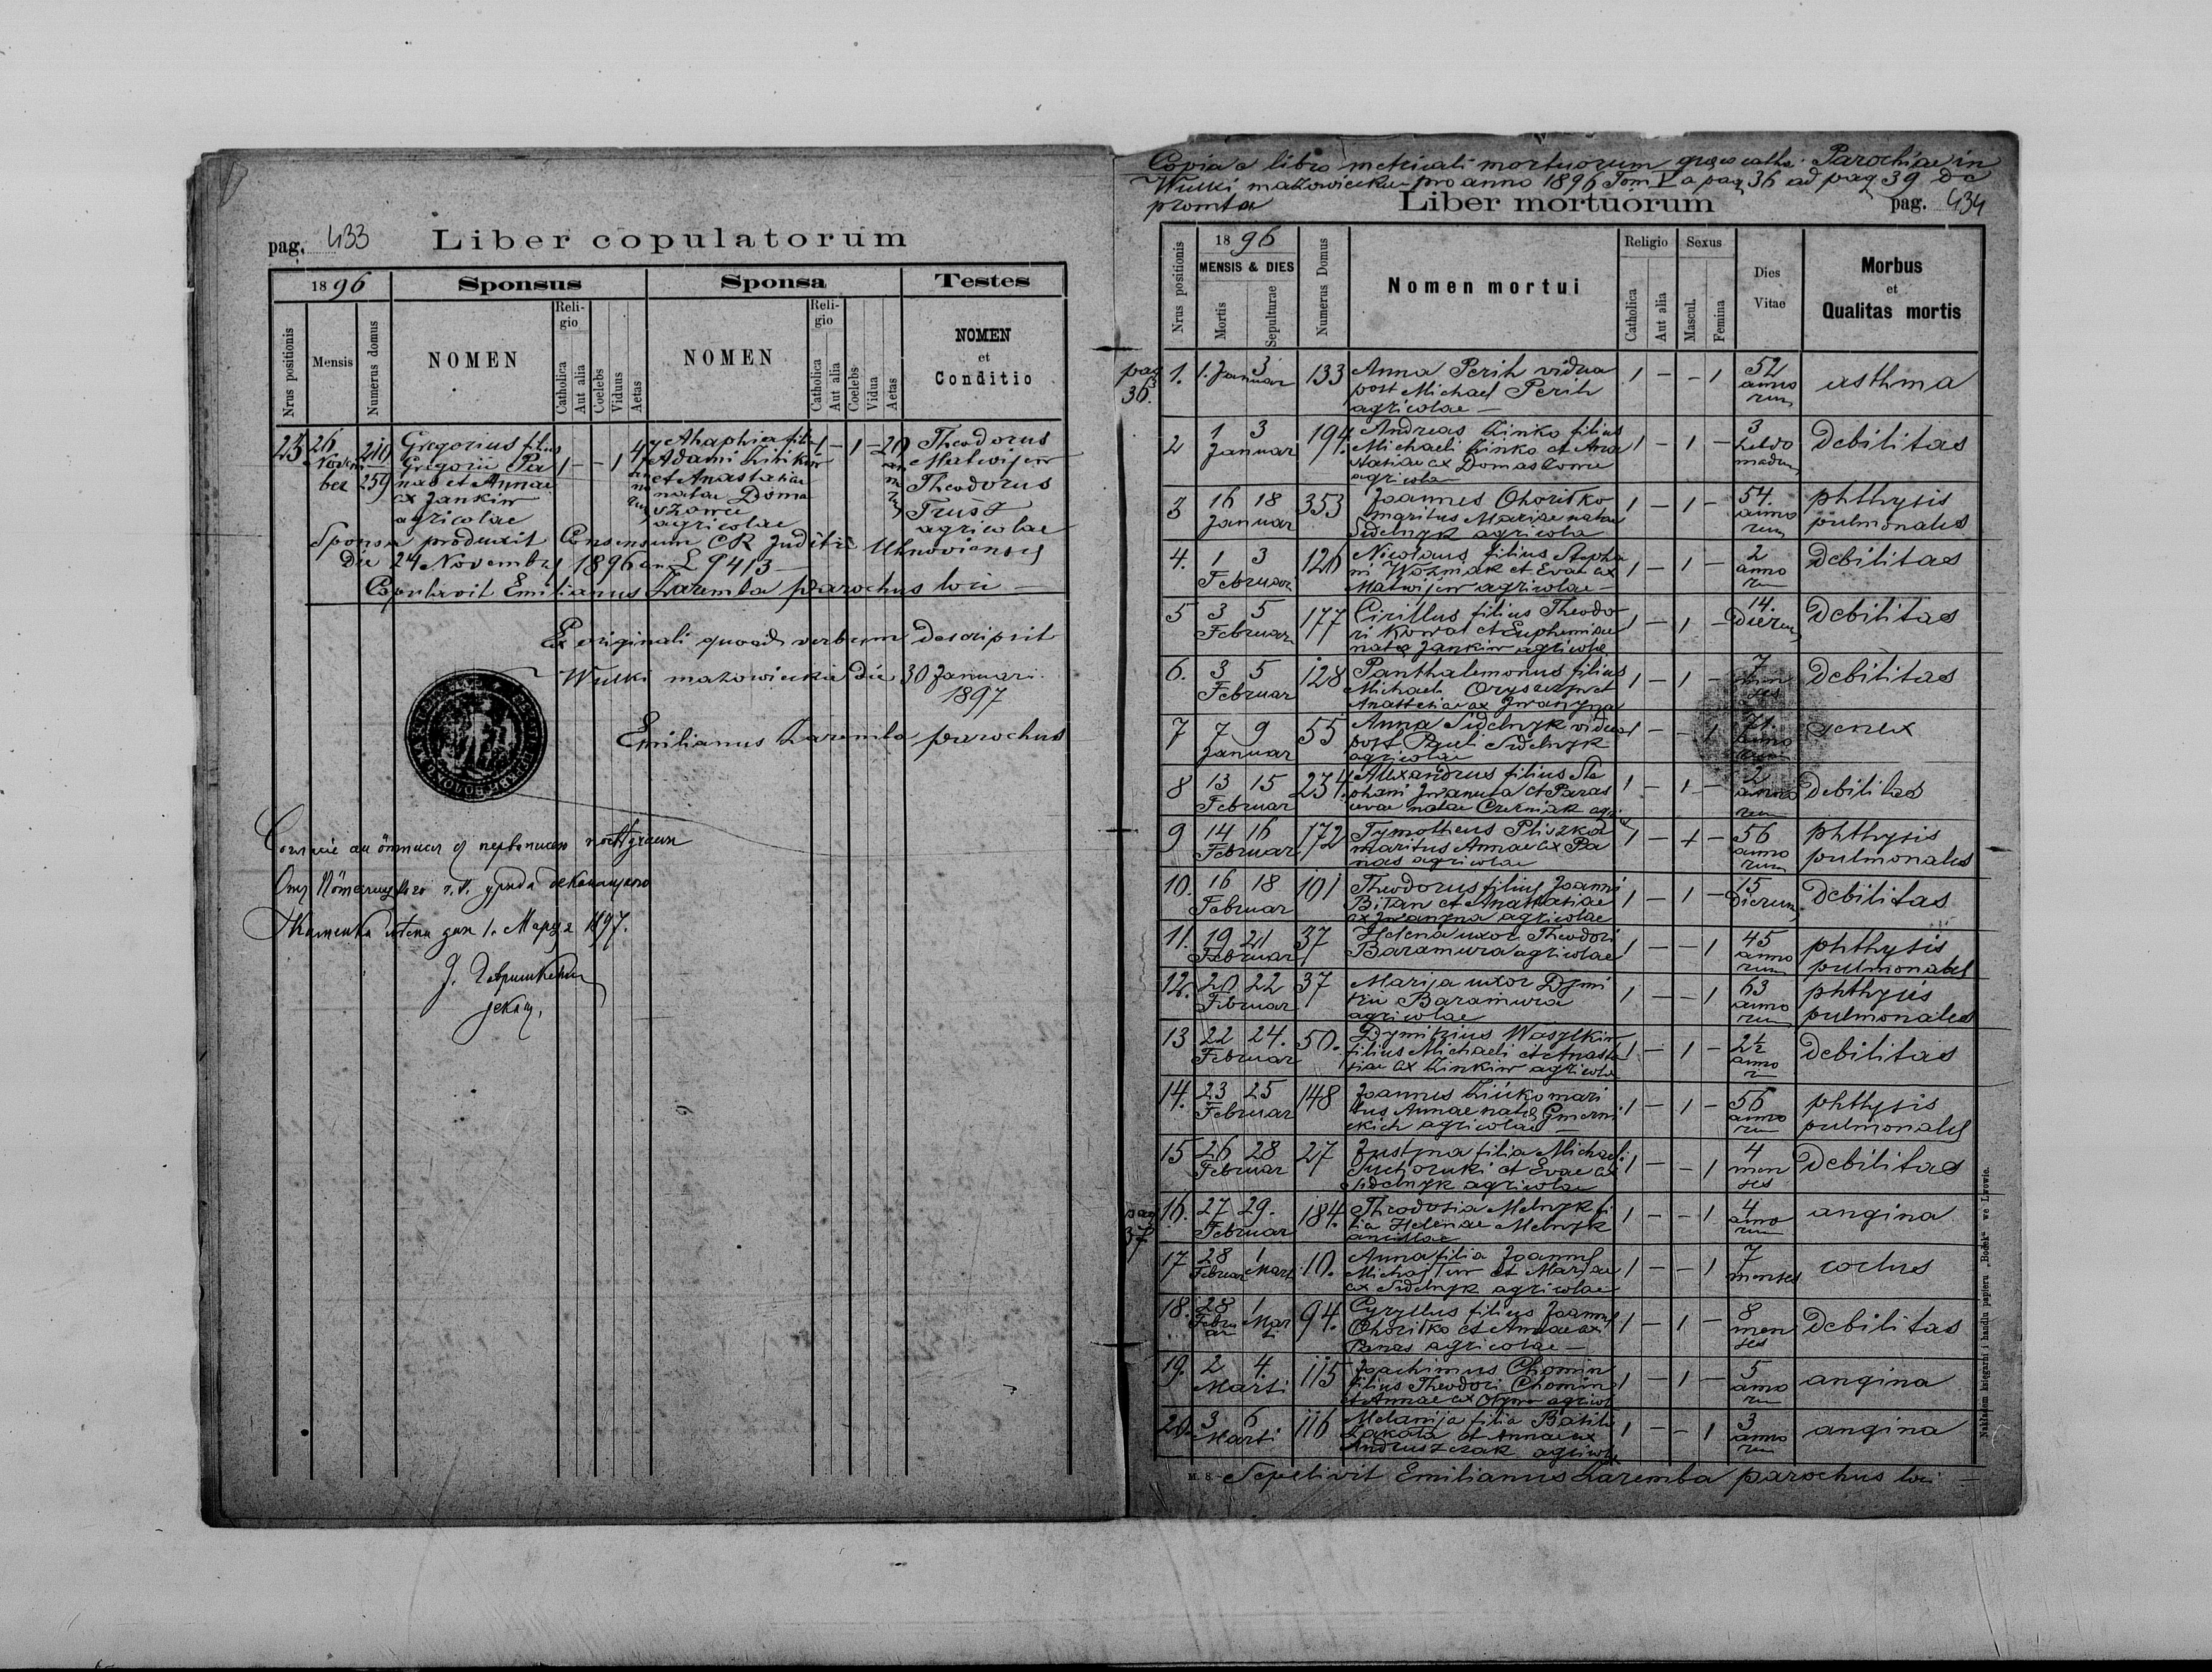 pag. 433 Liber copulatorum
1896 Sponsus Sponsa Testes
Nrus positionis Mensis Numerus domus NOMEN Religio Catholica Aut alia Coelebs Viduus Aetas NOMEN Religio Catholica Aut alia Coelebs Vidua Aetas NOMEN et Conditio
23 26 219 Gregorius filius 1 - - 1 47 Ahaphia filia 1 - 1 - 20 Theodorus
Novem Gregorii Pa Adami Matwijew
ber 259 nas et Annae et Anastasiae Theodorus
ex Jankiw natae Doma Trusz
agricolae szowec agricolae
agricolae
Sponsa produxit Consensum CR Juditii Uhnoviensis
Die 24 Novembris 1896 L 9413
Copulavit Emilianus Zaremba parochus loci
Ex originali quoad verbum descripsit
Wulki mazowiecka die 30 Januari
1897
Emilianus Zaremba parochus
1897.
Copia e libro metricali mortuorum graeco cath. Parochiae in
Wulki mazowiecka pro anno 1896 Tom V a pag 36 ad pag 39 De
promta Liber mortuorum pag. 434
Nrus positionis 1896 MENSIS & DIES Mortis Sepulturae Numerus Domus Nomen mortui Religio Catholica Aut alia Sexus Mascul. Femina Dies Vitae Morbus et Qualitas mortis
pag 36.
1. 1. 3 Januar 133 Anna Perih vidua 1 - - 1 52 anno rum asthma
post Michael Perih
agricolae
2 1 3 Januar 194. Andreas Zinko filius 1 - 1 - 3 Debilitas
Michaeli Zinko et Ana
stasiae ex
agricolae
3 16 18 Januar 353 Joannes Ohoritko 1 - 1 - 54. anno rum phthysis pulmonalis
maritus Mariae natae
Sidelnyk agricola
4. 1 3 Februar 126 Nicolaus filius Stepha 1 - 1 - 2 anno ru Debilitas
ni Wozniak et Evae ex
Matwijew agricolae
5 3 5 Februar 177 Cirillus filius Theodo 1 - 1 - 14. Dierum Debilitas
ri Kowal et Euphemiae
natae Jankiw agricolae
6. 3 5 Februar 128 Panthalemonus filius 1 - 1 - 7 men ses Debilitas
Michaeli et
Anastasiae ex Iwanyna
7 7 9 Januar 55 Anna Sidelnyk vidua 1 - - 1 71. senex
post Pauli Sidelnyk
agricolae
8 13 15 Februar 234 Alexandrus filius Ste 1 - 1 - 2 anno rum Debilitas
phani Iwanuta et Paras
cevae natae Czerniak agric
9 14 16 Februar 172 Tymotheus Pliszka 1 - 1 - 56 anno rum phthysis pulmonalis
maritus Annae ex Pa
nas agricolae
10. 16 18 Februar 101 Theodorus filius Joanni 1 - 1 - 15 Dierum Debilitas
Bilan et Anastasiae
ex Iwanyna agricolae
11. 19 21 Februar 37 Helena uxor Theodori 1 - - 1 45 anno rum phthysis pulmonalis
Baramura agricolae
12. 20 22 Februar 37 Marija uxor Dymi 1 - - 1 63 anno rum phthysis pulmonalis
trii Baramura
agricolae
13 22 24. Februar 50. Dymitrius Wasylkiw 1 - 1 - 2½ anno r Debilitas
filius Michaeli et Anasta
siae ex Zinkiw agricolae
14. 23 25 Februar 148 Joannes Zinko mari 1 - 1 - 56 anno rum phthysis pulmonalis
tus Annae natae
agricolae
15 26 28 Februar 27 Justyna filia Michaeli 1 - - 1 4 men ses Debilitas
et Evae ex
Sidelnyk agricolae
pag 37
16. 27 29. Februar 184. Theodosia Melnyk fi 1 - - 1 4 anno rum angina
lia Helenae Melnyk
ancillae
17 28 Februar 1 Marti 10. Anna filia Joannis 1 - - 1 7 menses
et Mariae
ex Sidelnyk agricolae
18. 28 Febru ar 1 Mar ti 94. Cyryllus filius Joannis 1 - 1 - 8 men ses Debilitas
Ohoritko et Annae ex
Panas agricolae
19. 2 4. Marti 115 Joachimus Chomin 1 - 1 - 5 anno ru angina
filius Theodori Chomin
et Annae ex agricol
20. 3 6 Marti 116 Melanija filia Basili 1 - - 1 3 anno ru angina
Zakala et Annae ex
Andruszczak agricolae
M. S. Sepelivit Emilianus Zaremba parochus loci
Nakładem księgarni i handlu papieru „Bodek" we Lwowie.